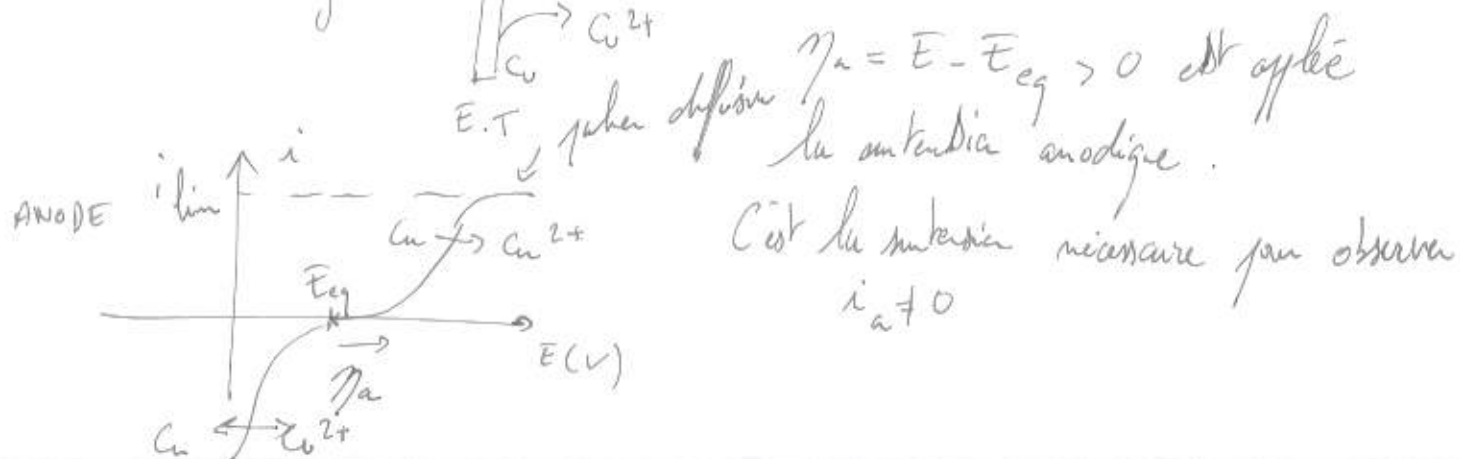 Cu 2+
Cu
E.T
palier diffusion
ηa = E - Eeq > 0 est applée
la surtension anodique.
C'est la surtension nécessaire pour observer
ia ≠ 0
ANODE
i lim
i
Cu → Cu 2+
Eeq
E(V)
ηa
Cu ← Cu 2+